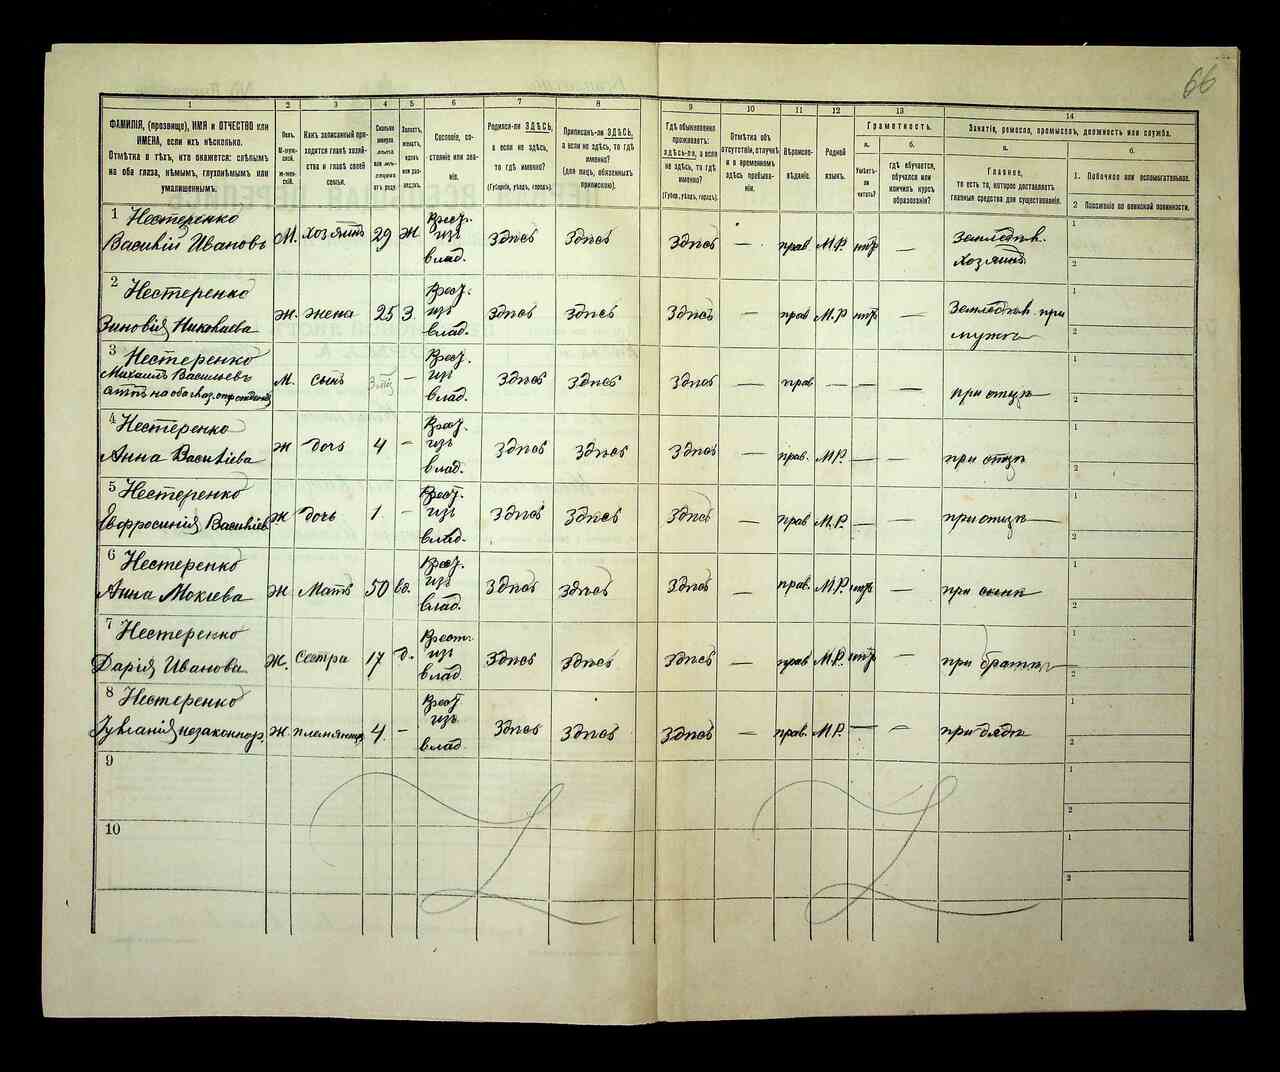 66
1
2
3
4
5
6
7
8
9
10
11
12
13
14
ФАМИЛІЯ, (прозвище), ИМЯ и ОТЧЕСТВО или
ИМЕНА, если ихъ нѣсколько.
Отмѣтка о тѣхъ, кто окажется: слѣпымъ
на оба глаза, нѣмымъ, глухонѣмымъ или
умалишеннымъ.
Полъ.
М-муж-
ской.
Ж-жен-
скій.
Какъ записанный при-
ходится главѣ хозяй-
ства и главѣ своей
семьи.
Сколько
минуло
лѣтъ
или мѣ-
сяцевъ
отъ роду
Холостъ,
женатъ,
вдовъ
или раз-
веденъ
Сословіе, со-
стояніе или зва-
ніе.
Родился-ли ЗДѢСЬ,
а если не здѣсь,
то гдѣ именно?
(Губернія, уѣздъ, городъ).
Приписанъ-ли ЗДѢСЬ,
а если не здѣсь, то гдѣ
именно?
(для лицъ, обязанныхъ
припискою).
Гдѣ обыкновенно
проживаетъ:
здѣсь-ли, а если
не здѣсь, то гдѣ
именно?
(Губер., уѣздъ, городъ).
Отмѣтка объ
отсутствіи, отлучкѣ
и о временномъ
здѣсь пребыва-
ніи.
Вѣроиспо-
вѣданіе.
Родной
языкъ.
Грамотность.
а.
б.
Умѣетъ-
ли
читать?
гдѣ обучается,
обучался или
кончилъ курсъ
образованія?
Занятіе, ремесло, промыселъ, должность или служба.
а.
б.
Главное,
то есть то, которое доставляетъ
главныя средства для существованія.
1. Побочное или вспомогательное.
2 Положеніе по воинской повинности.
1 Нестеренко
Василій Ивановъ М. хозяинъ 29 Ж. Крест. изъ влад. Здѣсь Здѣсь Здѣсь — прав М.Р. нѣтъ — Земледѣл. хозяинъ
2 Нестеренко
Зиновія Николаева Ж. жена 25 З. Крест. изъ влад. Здѣсь Здѣсь Здѣсь — прав М.Р нѣтъ — Земледѣл. при мужѣ
3 Нестеренко
Михаилъ Васильевъ
М. сынъ — Крест. изъ влад. Здѣсь Здѣсь Здѣсь — прав — — — при отцѣ
4 Нестеренко
Анна Васильева Ж дочь 4 — Крест. изъ влад. Здѣсь Здѣсь Здѣсь — прав. М.Р. — — при отцѣ
5 Нестеренко
Евфросинія Васильев Ж дочь 1 — Крест. изъ влад. Здѣсь Здѣсь Здѣсь — прав М.Р. — — при отцѣ
6 Нестеренко
Анна Мокіева Ж Мать 50 вд. Крест. изъ влад. Здѣсь Здѣсь Здѣсь — прав. М.Р. нѣтъ — при сынѣ
7 Нестеренко
Дарія Иванова Ж. Сестра 17 д. Крестн. изъ влад. Здѣсь Здѣсь Здѣсь — прав М.Р. нѣтъ — при братѣ
8 Нестеренко
незаконнор. Ж. племянница 4. — Крест изъ влад. Здѣсь Здѣсь Здѣсь — прав. М.Р. — — при дядѣ
9
10